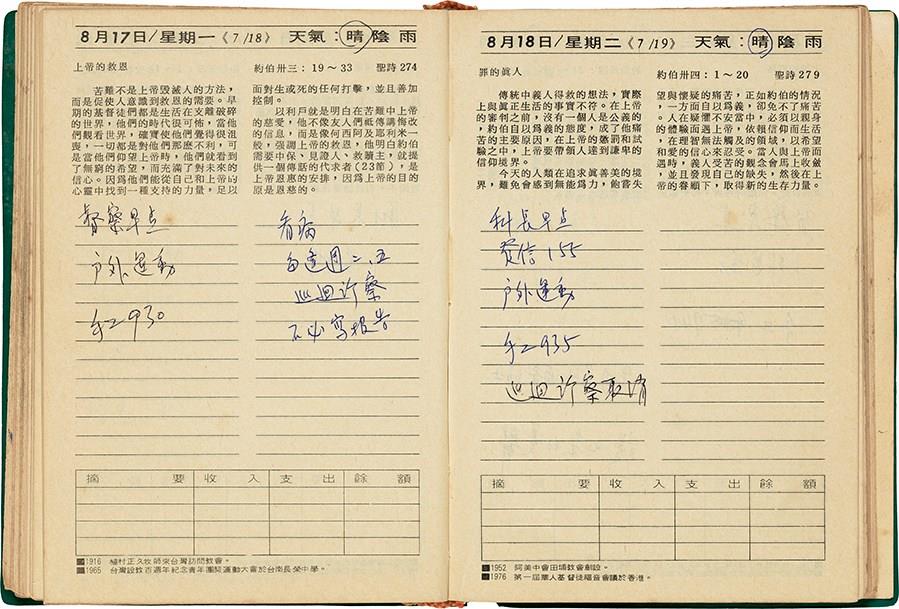 8月17日/星期一《7/18》 天氣:晴陰雨
上帝的救恩 約伯卅三:19～33 聖詩274
苦難不是上帝毀滅人的方法,
而是促使人意識到救恩的需要。早
期的基督徒們都是生活在支離破碎
的世界,他們的時代很可怖,當他
們觀看世界,確實使他們覺得很沮
喪,一切都是對他們那麼不利,可
是當他們仰望上帝時,他們就看到
了無窮的希望,而充滿了對未來的
信心。因爲他們能從自己和上帝的
心靈中找到一種支持的力量,足以
面對生或死的任何打擊,並且善加
控制。
以利戶就是明白在苦難中上帝
的慈愛,他不像友人們祇傳講悔改
的信息,而是像何西阿及耶利米一
般,强調上帝的救恩,他明白約伯
需要中保、見證人、救贖主,就提
供一個傳話的代求者(23節),是
上帝恩惠的安排,因爲上帝的目的
原是恩慈的。
督察早点
戶外運動
手工930
看病
每逢週二、五
巡迴診察
不必寫報告
摘要 收入 支出 餘額
1916 植村正久牧師來台灣訪問教會。
1965 台灣設教百週年紀念青年團契運動大會於台南長榮中學。
8月18日/星期二《7/19》 天氣:晴陰雨
罪的眞人 約伯卅四:1～20 聖詩279
傳統中義人得救的想法,實際
上與眞正生活的事實不符。在上帝
的審判之前,沒有一個人是公義的
,約伯自以爲義的態度,成了他痛
苦的主要原因,在上帝的懲罰和試
驗之中,上帝要帶領人達到謙卑的
信仰境界。
今天的人類在追求眞善美的境
界,難免會感到無能爲力,飽嘗失
望與懷疑的痛苦,正如約伯的情況
,一方面自以爲義,卻免不了痛苦
。人在疑懼不安當中,必須以親身
的體驗面遇上帝,依賴信仰而生活
,在理智無法觸及的領域,以希望
和愛的信心來忍受。當人與上帝面
遇時,義人受苦的觀念會馬上收斂
,並且發現自己的缺失,然後在上
帝的眷顧下,取得新的生存力量。
科長早点
寄信155
戶外運動
手工935
巡迴診察取消
摘要 收入 支出 餘額
1952 阿美中會田埔教會創設。
1976 第一屆華人基督徒福音會議於香港。